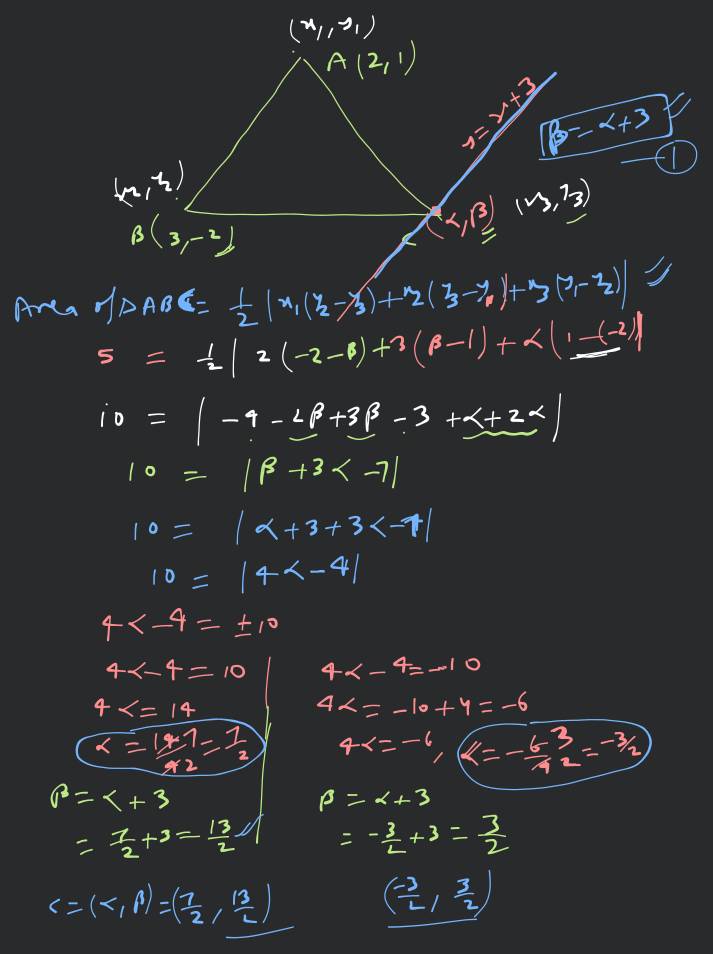 (x₁, y₁)
A (2, 1)
y = x+3
β = α+3
①
(x₂, y₂)
B (3, -2)
(α, β) (x₃, y₃)
Area of ΔABC = 1/2 |x₁(y₂-y₃)+x₂(y₃-y₁)+x₃(y₁-y₂)|
5 = 1/2 | 2(-2-β)+3(β-1)+α(1-(-2))|
10 = |-4-2β+3β-3+α+2α|
10 = |β+3α-7|
10 = |α+3+3α-7|
10 = |4α-4|
4α-4 = ±10
4α-4 = 10
4α = 14
α = 14 7/4 2 = 7/2
β = α+3
= 7/2+3 = 13/2
C = (α, β) = (7/2, 13/2)
4α-4 = -10
4α = -10+4 = -6
4α = -6, α = -6 3/4 2 = -3/2
β = α+3
= -3/2+3 = 3/2
(-3/2, 3/2)